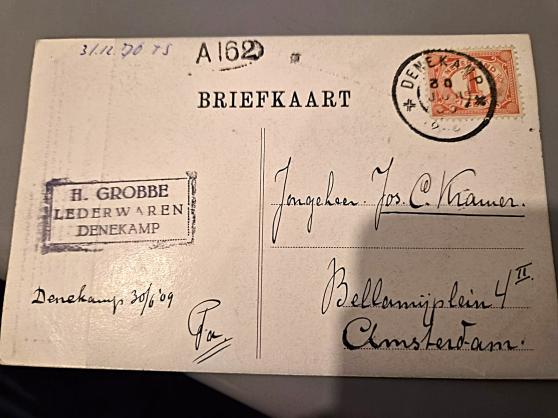 31.12.70 TS
A162
BRIEFKAART
DENEKAMP
1
H. GROBBE
LEDERWAREN
DENEKAMP
Denekamp 30/6 '09
Pa.
Jongeheer Jos. C. Kramer.
Bellamyplein 4 II
Amsterdam.